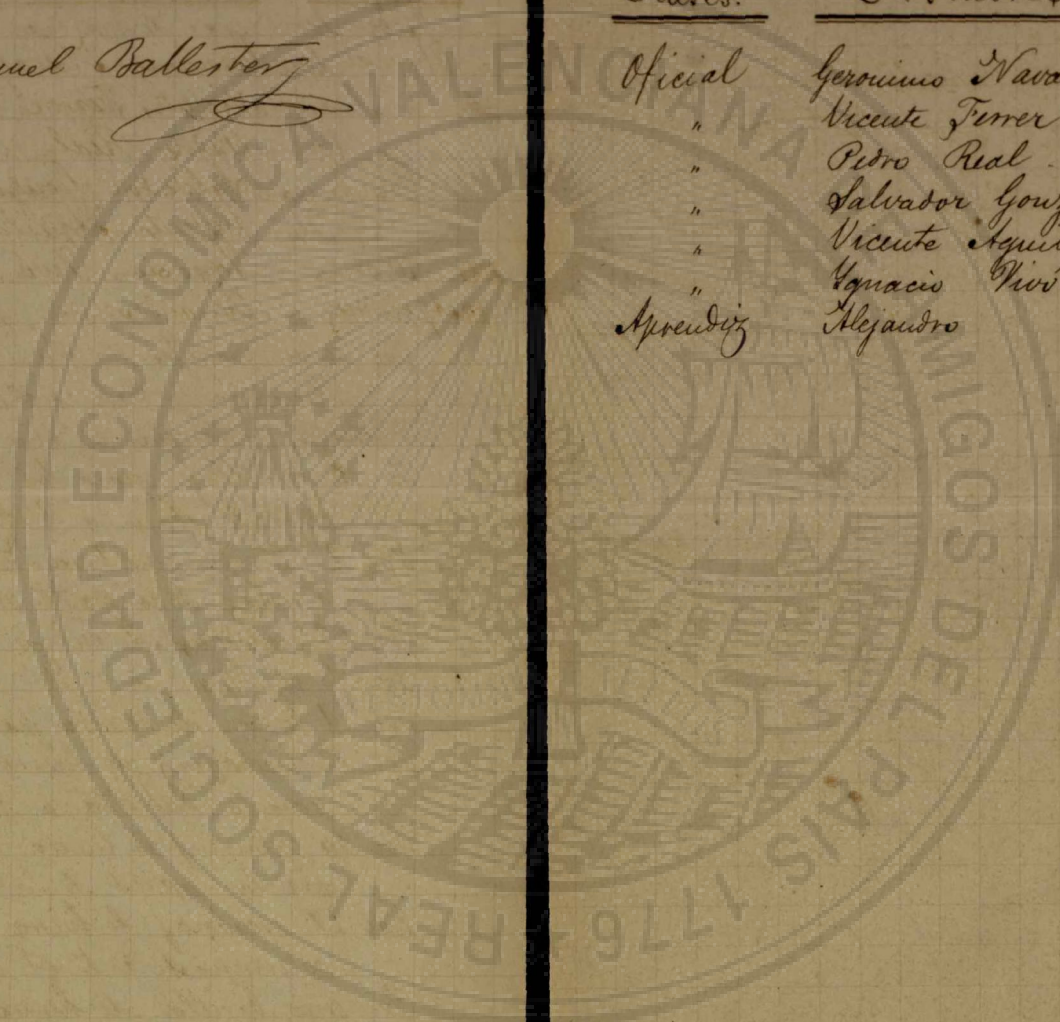 uel Ballester
Clases.
Oficial Geronimo Nava
" Vicente Ferrer
" Pedro Real
" Salvador Gonz
" Vicente Agui
" Ygnacio Vivó
Aprendiz Alejandro
REAL SOCIEDAD ECONOMICA VALENCIANA AMIGOS DEL PAIS 1776